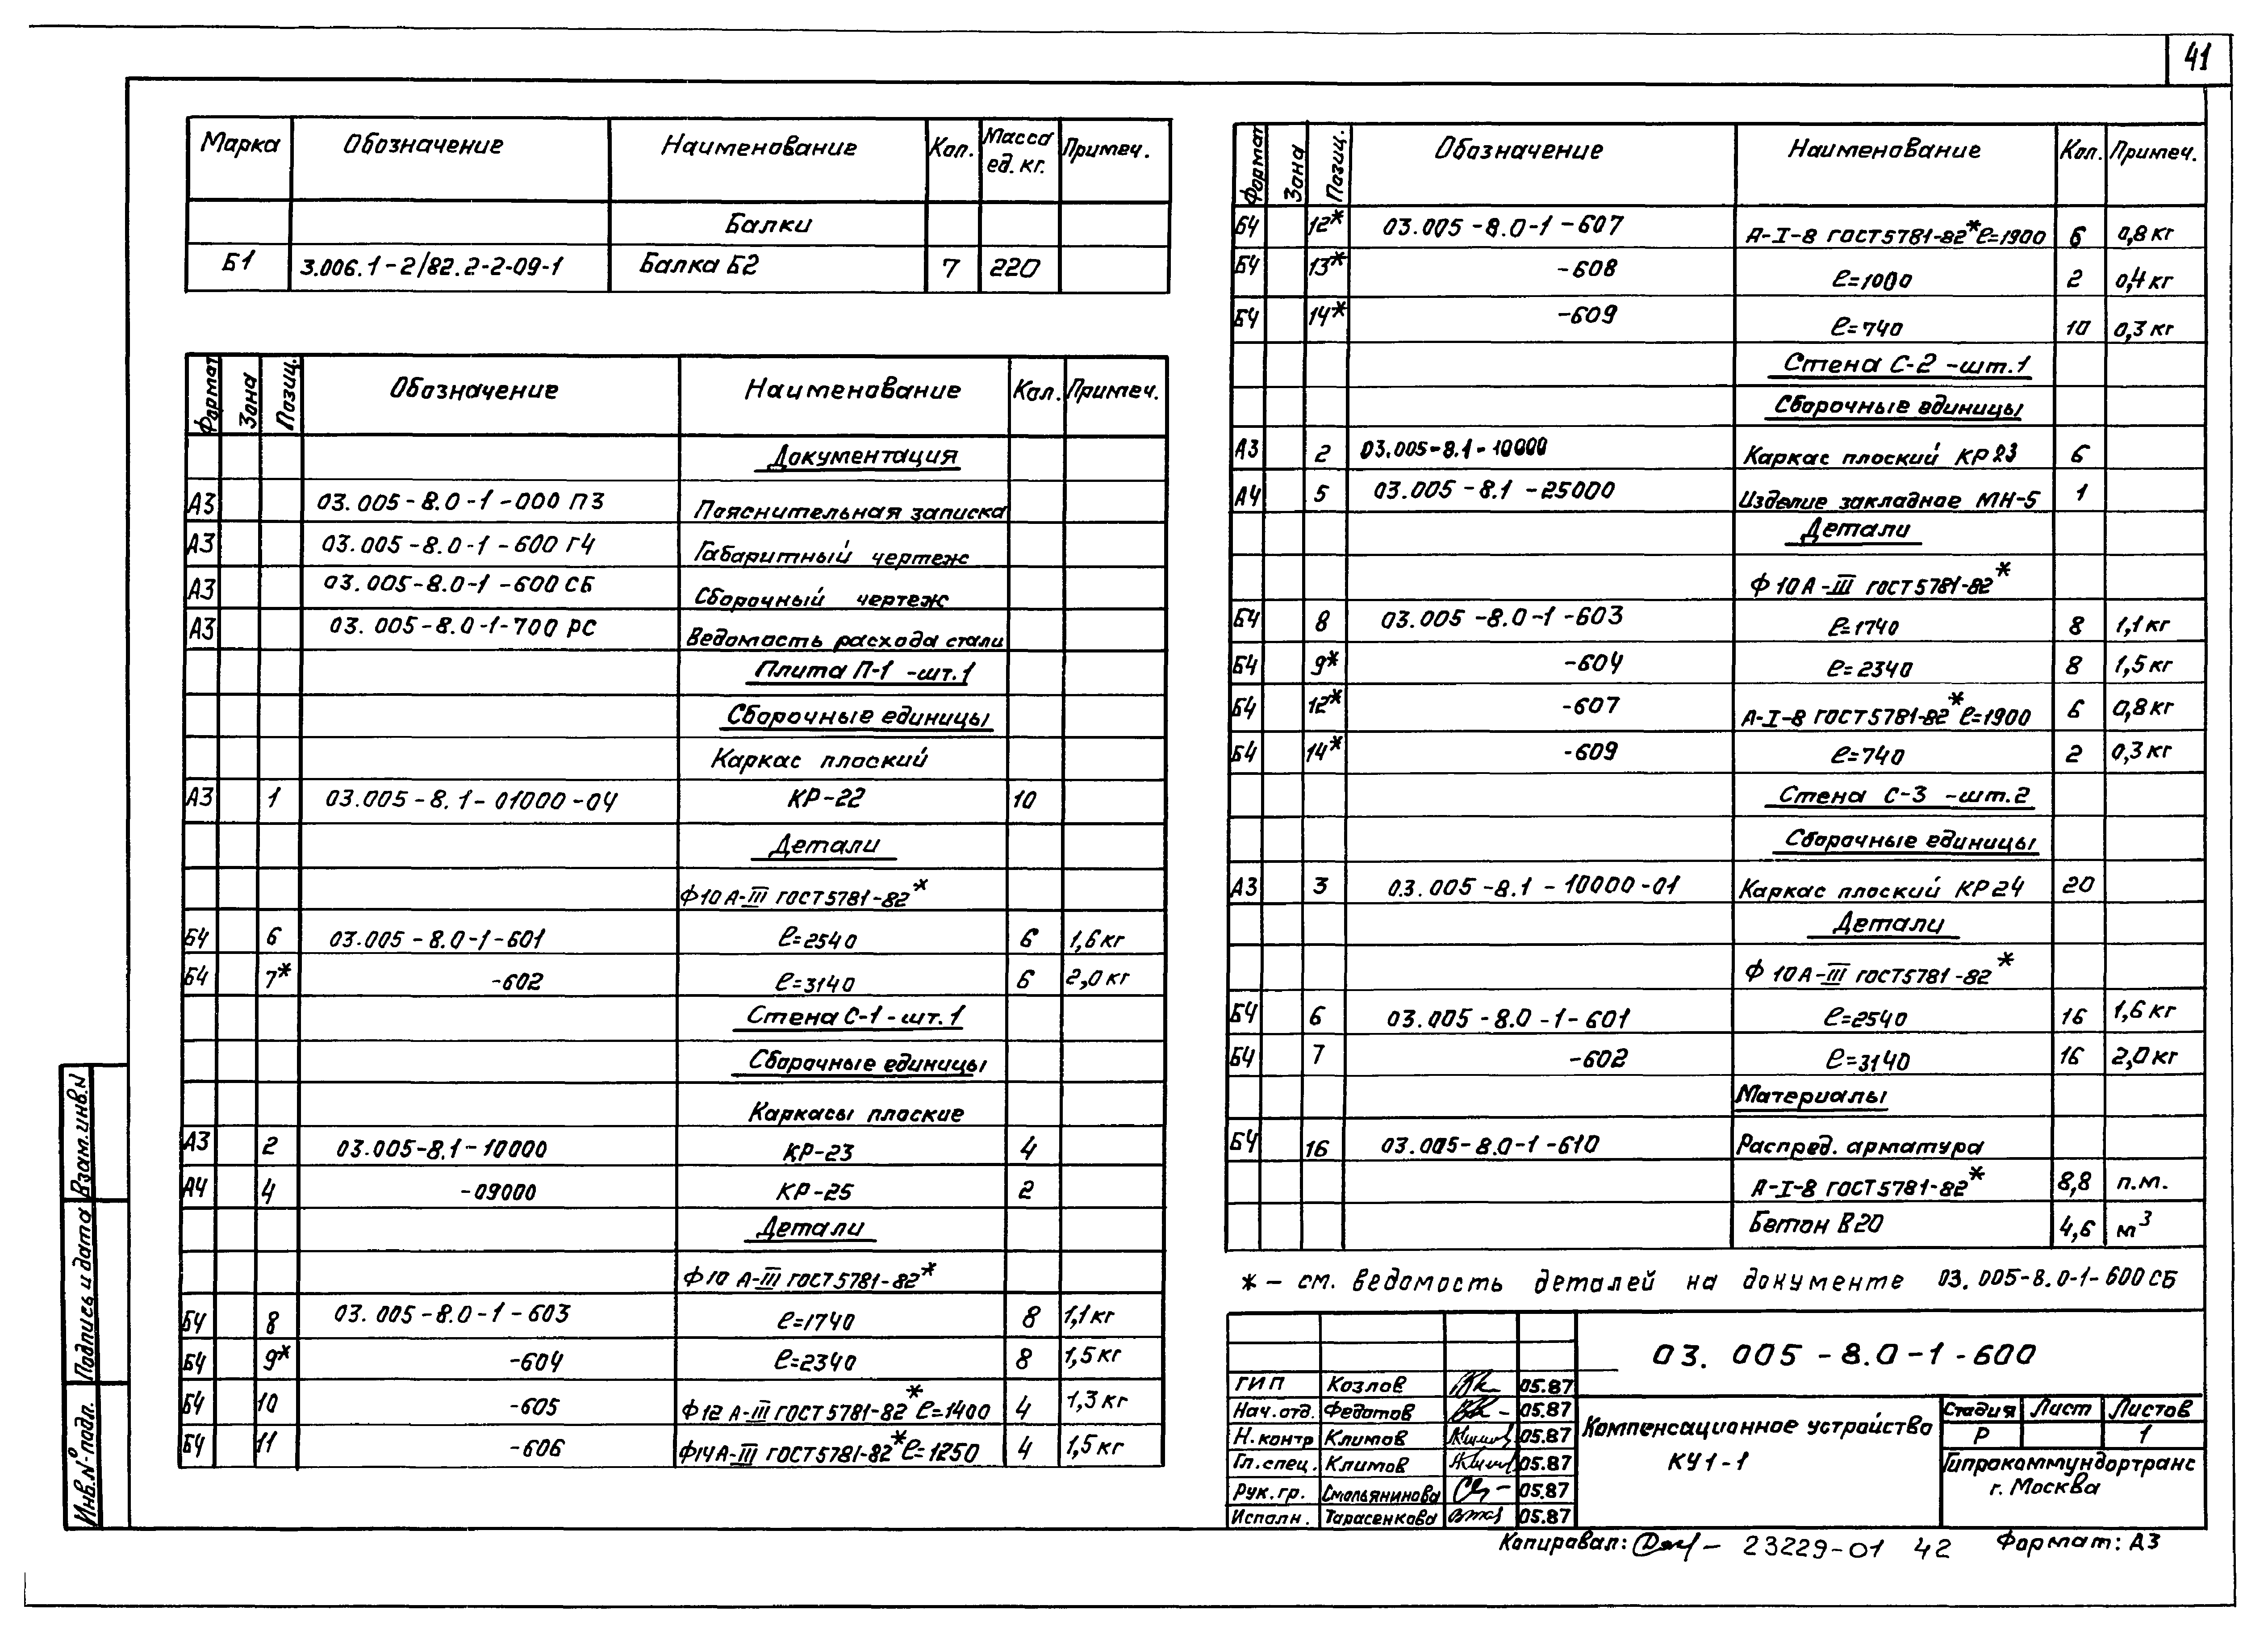 41
Марка Обозначение Наименование Кол. Масса ед. кг. Примеч.
Балки
Б1 3.006.1-2/82.2-2-09-1 Балка Б2 7 220
Формат Зона Позиц. Обозначение Наименование Кол. Примеч.
Документация
А3 03.005-8.0-1-000 ПЗ Пояснительная записка
А3 03.005-8.0-1-600 ГЧ Габаритный чертеж
А3 03.005-8.0-1-600 СБ Сборочный чертеж
А3 03.005-8.0-1-700 РС Ведомость расхода стали
Плита П-1 -шт.1
Сборочные единицы
Каркас плоский
А3 1 03.005-8.1-01000-04 КР-22 10
Детали
Ф10 А-III ГОСТ 5781-82*
Б4 6 03.005-8.0-1-601 ℓ=2540 6 1,6 кг
Б4 7* -602 ℓ=3140 6 2,0 кг
Стена С-1 - шт.1
Сборочные единицы
Каркасы плоские
А3 2 03.005-8.1-10000 КР-23 4
А4 4 -09000 КР-25 2
Детали
Ф10 А-III ГОСТ 5781-82*
Б4 8 03.005-8.0-1-603 ℓ=1740 8 1,1 кг
Б4 9* -604 ℓ=2340 8 1,5 кг
Б4 10 -605 Ф12 А-III ГОСТ 5781-82* ℓ=1400 4 1,3 кг
Б4 11 -606 Ф14 А-III ГОСТ 5781-82* ℓ=1250 4 1,5 кг
Формат Зона Позиц. Обозначение Наименование Кол. Примеч.
Б4 12* 03.005-8.0-1-607 А-I-8 ГОСТ 5781-82* ℓ=1900 6 0,8 кг
Б4 13* -608 ℓ=1000 2 0,4 кг
Б4 14* -609 ℓ=740 10 0,3 кг
Стена С-2 -шт.1
Сборочные единицы
А3 2 03.005-8.1-10000 Каркас плоский КР23 6
А4 5 03.005-8.1-25000 Изделие закладное МН-5 1
Детали
Ф 10 А-III ГОСТ 5781-82*
Б4 8 03.005-8.0-1-603 ℓ=1740 8 1,1 кг
Б4 9* -604 ℓ=2340 8 1,5 кг
Б4 12* -607 А-I-8 ГОСТ 5781-82* ℓ=1900 6 0,8 кг
Б4 14* -609 ℓ=740 2 0,3 кг
Стена С-3 -шт.2
Сборочные единицы
А3 3 03.005-8.1-10000-01 Каркас плоский КР24 20
Детали
Ф 10 А-III ГОСТ 5781-82*
Б4 6 03.005-8.0-1-601 ℓ=2540 16 1,6 кг
Б4 7 -602 ℓ=3140 16 2,0 кг
Материалы
Б4 16 03.005-8.0-1-610 Распред. арматура
А-I-8 ГОСТ 5781-82* 8,8 п.м.
Бетон В20 4,6 м³
* - см. ведомость деталей на документе 03.005-8.0-1-600 СБ
03. 005-8.0-1-600
ГИП Козлов 05.87
Нач.отд. Федотов 05.87
Н.контр Климов 05.87
Гл.спец. Климов 05.87
Рук.гр. Смольянинова 05.87
Исполн. Тарасенкова 05.87
Компенсационное устройство
КУ1-1
Стадия Лист Листов
Р 1
Гипрокоммундортранс
г. Москва
Взам.инв.N
Подпись и дата
Инв.N° подл.
Копировал: 23229-01 42 Формат: А3